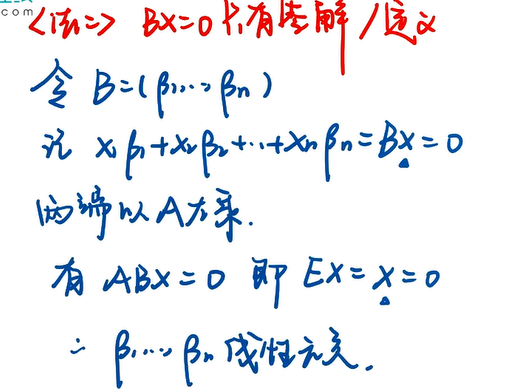 com
<法二> BX=0 只有零解/定义
令 B=(β1,…βn)
记 x1β1+x2β2+…+xnβn=BX=0
两端以A左乘.
有 ABX=0 即 EX=X=0
∴ β1…βn 线性无关.